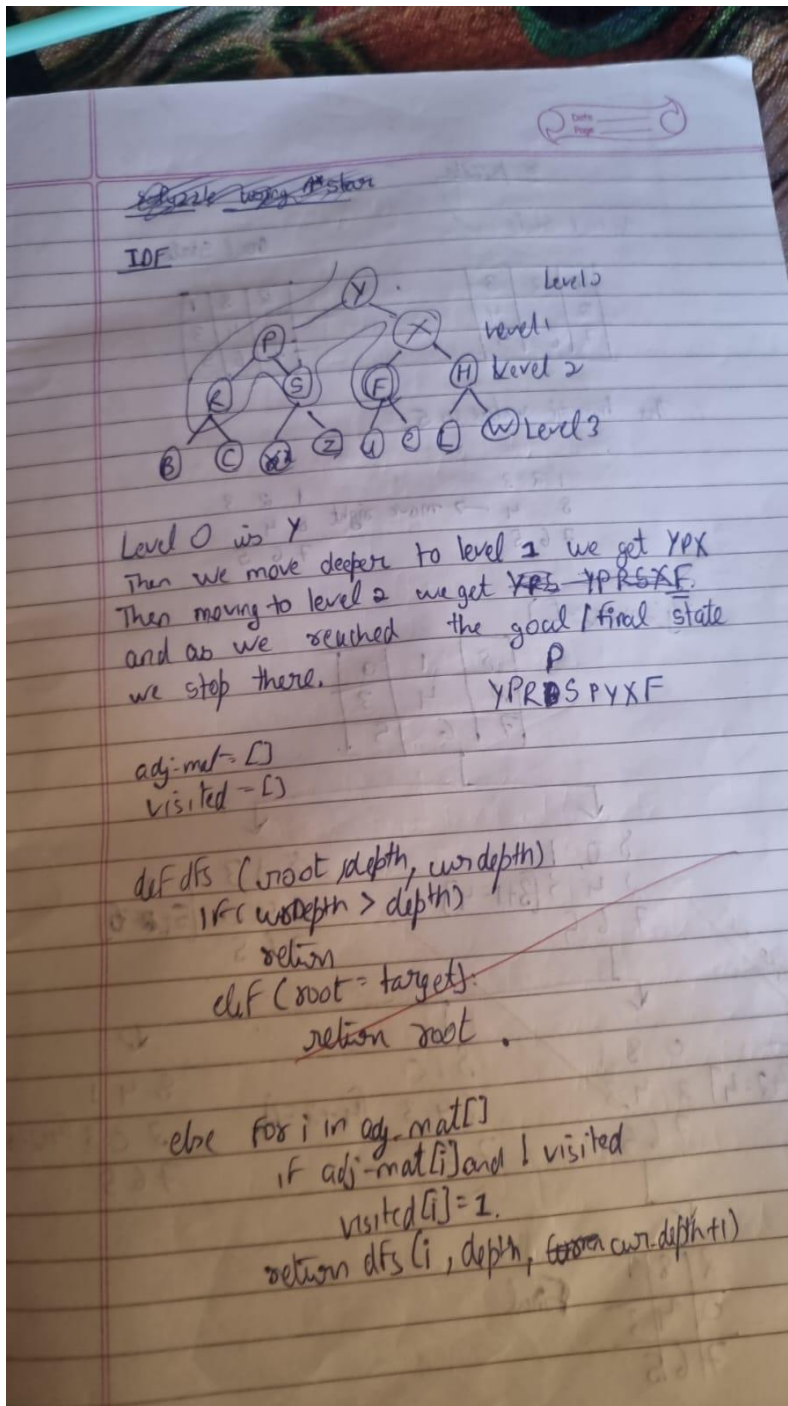 Date
Page
8 Puzzle using A* star
IDF
Y
Level 0
P
X
Level 1
R
S
F
H
Level 2
B
C
Z
L
W
Level 3
Level 0 is Y
Then we move deeper to level 1 we get YPX
Then moving to level 2 we get YRS YPRSXF.
and as we reached the goal / final state
we stop there.
P
YPR S PYXF
adj-mat= []
visited = []
def dfs (root, depth, curdepth)
if (curDepth > depth)
return
elif (root = target):
return root.
else for i in adj-mat[]
if adj-mat[i] and ! visited
visited[i]=1.
return dfs (i, depth, cur-depth+1)